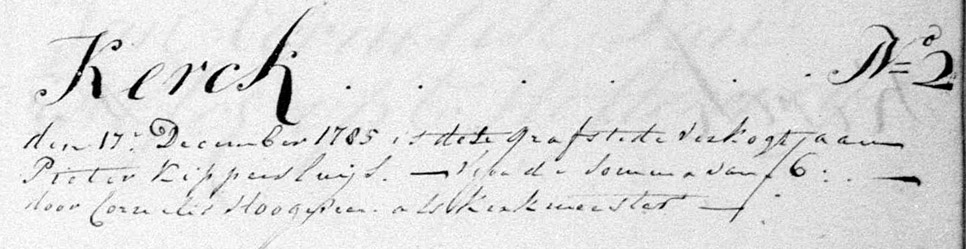 Kerck . . . . . . No= 2
den 17: December 1785 is dese grafstede verkogt aan
Pieter Kippersluijs. — voor de somma van f 6: . —
door Cornelis Hoogeveen als Kerkmeester —